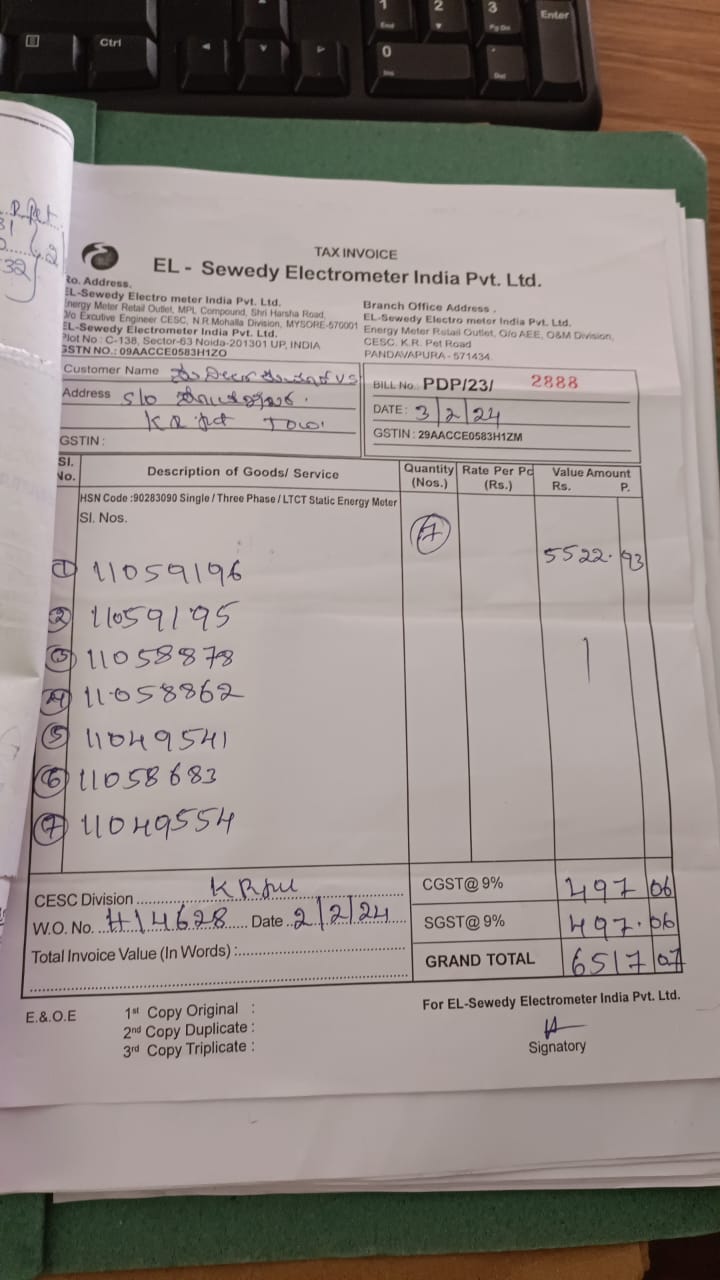 Ctrl
1
End
2
3
Pg Dn
Enter
0
Ins
Del
TAX INVOICE
EL - Sewedy Electrometer India Pvt. Ltd.
Ro. Address.
EL-Sewedy Electro meter India Pvt. Ltd.
Energy Meter Retail Outlet, MPL Compound, Shri Harsha Road,
O/o Excutive Engineer CESC, N.R.Mohalla Division, MYSORE-570001
EL-Sewedy Electrometer India Pvt. Ltd.
Plot No : C-138, Sector-63 Noida-201301 UP, INDIA
GSTN NO.: 09AACCE0583H1ZO
Branch Office Address .
EL-Sewedy Electro meter India Pvt. Ltd.
Energy Meter Retail Outlet, O/o AEE, O&M Division,
CESC. K.R. Pet Road
PANDAVAPURA - 571434.
Customer Name
Address S/o
K R
GSTIN :
BILL No. PDP/23/ 2888
DATE : 3/2/24
GSTIN : 29AACCE0583H1ZM
Sl. No. Description of Goods/ Service Quantity (Nos.) Rate Per Pc (Rs.) Value Amount Rs. P.
HSN Code :90283090 Single / Three Phase / LTCT Static Energy Meter
Sl. Nos.
7 5522.93
1 11059196
2 11059195
3 11058878
4 11058862
5 11049541
6 11058683
7 11049554
CESC Division
W.O. No. H14628 Date 2/2/24
Total Invoice Value (In Words) :
CGST@ 9% 497 06
SGST@ 9% 497.06
GRAND TOTAL 6517 07
E.&.O.E
1st Copy Original :
2nd Copy Duplicate :
3rd Copy Triplicate :
For EL-Sewedy Electrometer India Pvt. Ltd.
Signatory